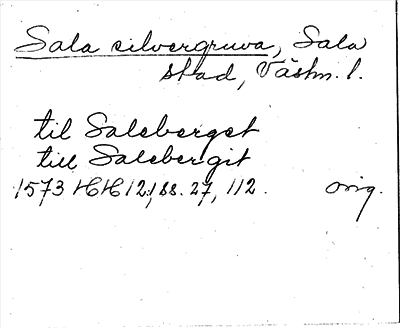 Sala silvergruva, Sala
stad, Västm. l.
til Saleberget
till Salebergit
1573 HH 12, ss. 27, 112. orig.